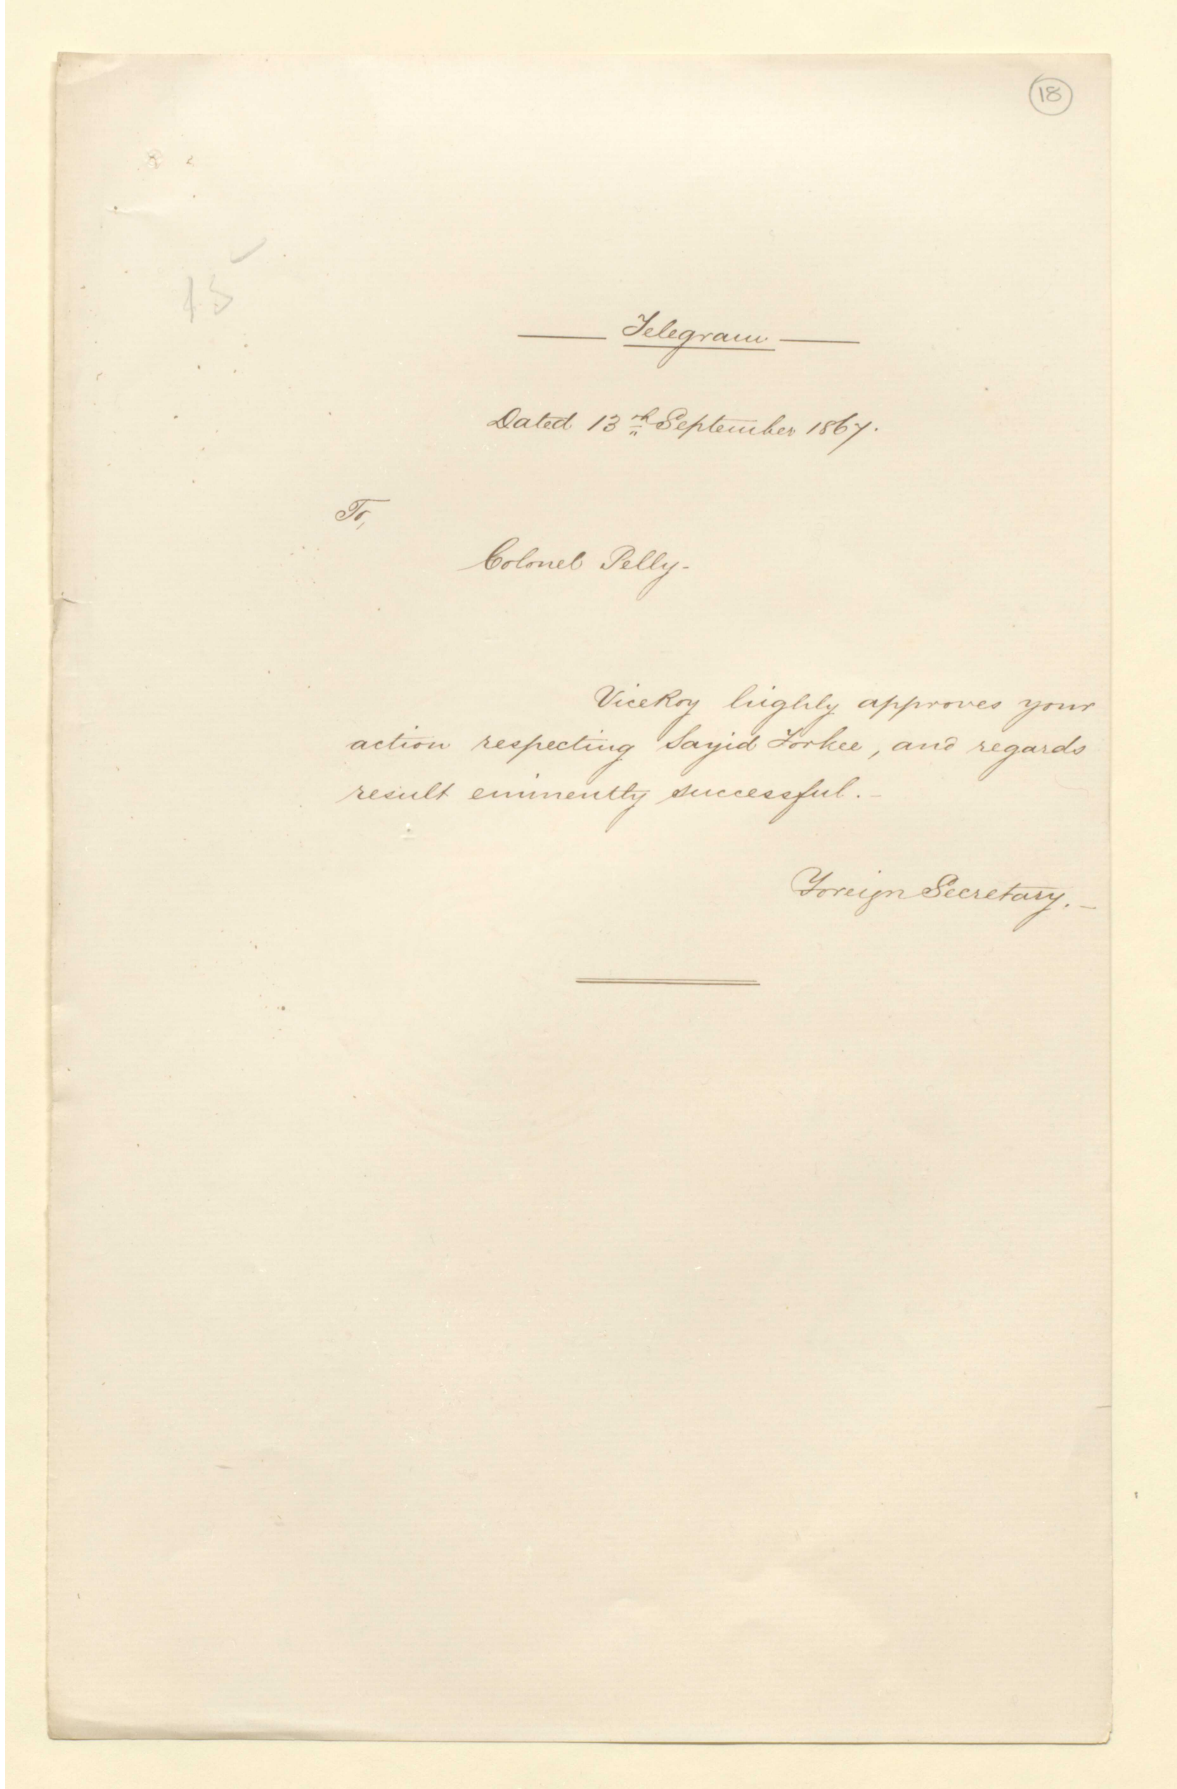 18
15
Telegram
Dated 13th September 1867.
To,
Colonel Pelly-
ViceRoy highly approves your
action respecting Sayid Torkee, and regards
result eminently successful. -
Foreign Secretary. -